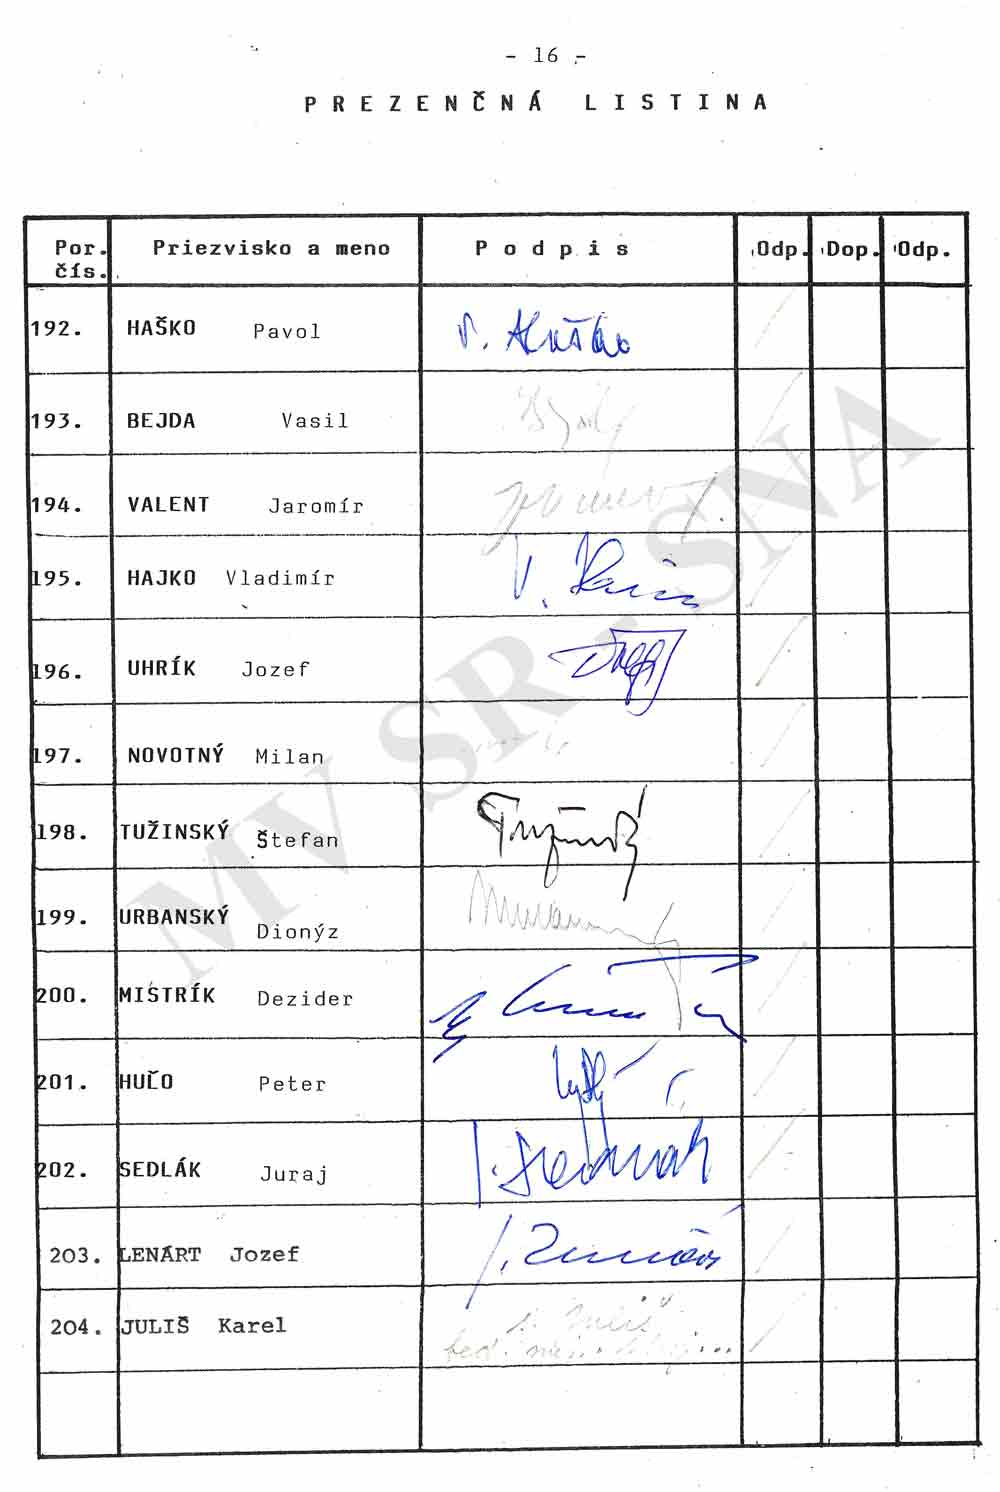 - 16 -
PREZENČNÁ LISTINA
Por. čís. Priezvisko a meno Podpis Odp. Dop. Odp.
192. HAŠKO Pavol P. Haško
193. BEJDA Vasil
194. VALENT Jaromír
195. HAJKO Vladimír V. Hajko
196. UHRÍK Jozef
197. NOVOTNÝ Milan
198. TUŽINSKÝ Štefan Tužinský
199. URBANSKÝ Dionýz
200. MISTRÍK Dezider
201. HUĽO Peter
202. SEDLÁK Juraj J. Sedlák
203. LENÁRT Jozef J. Lenárt
204. JULIŠ Karel K. Juliš
MV SR - SNA